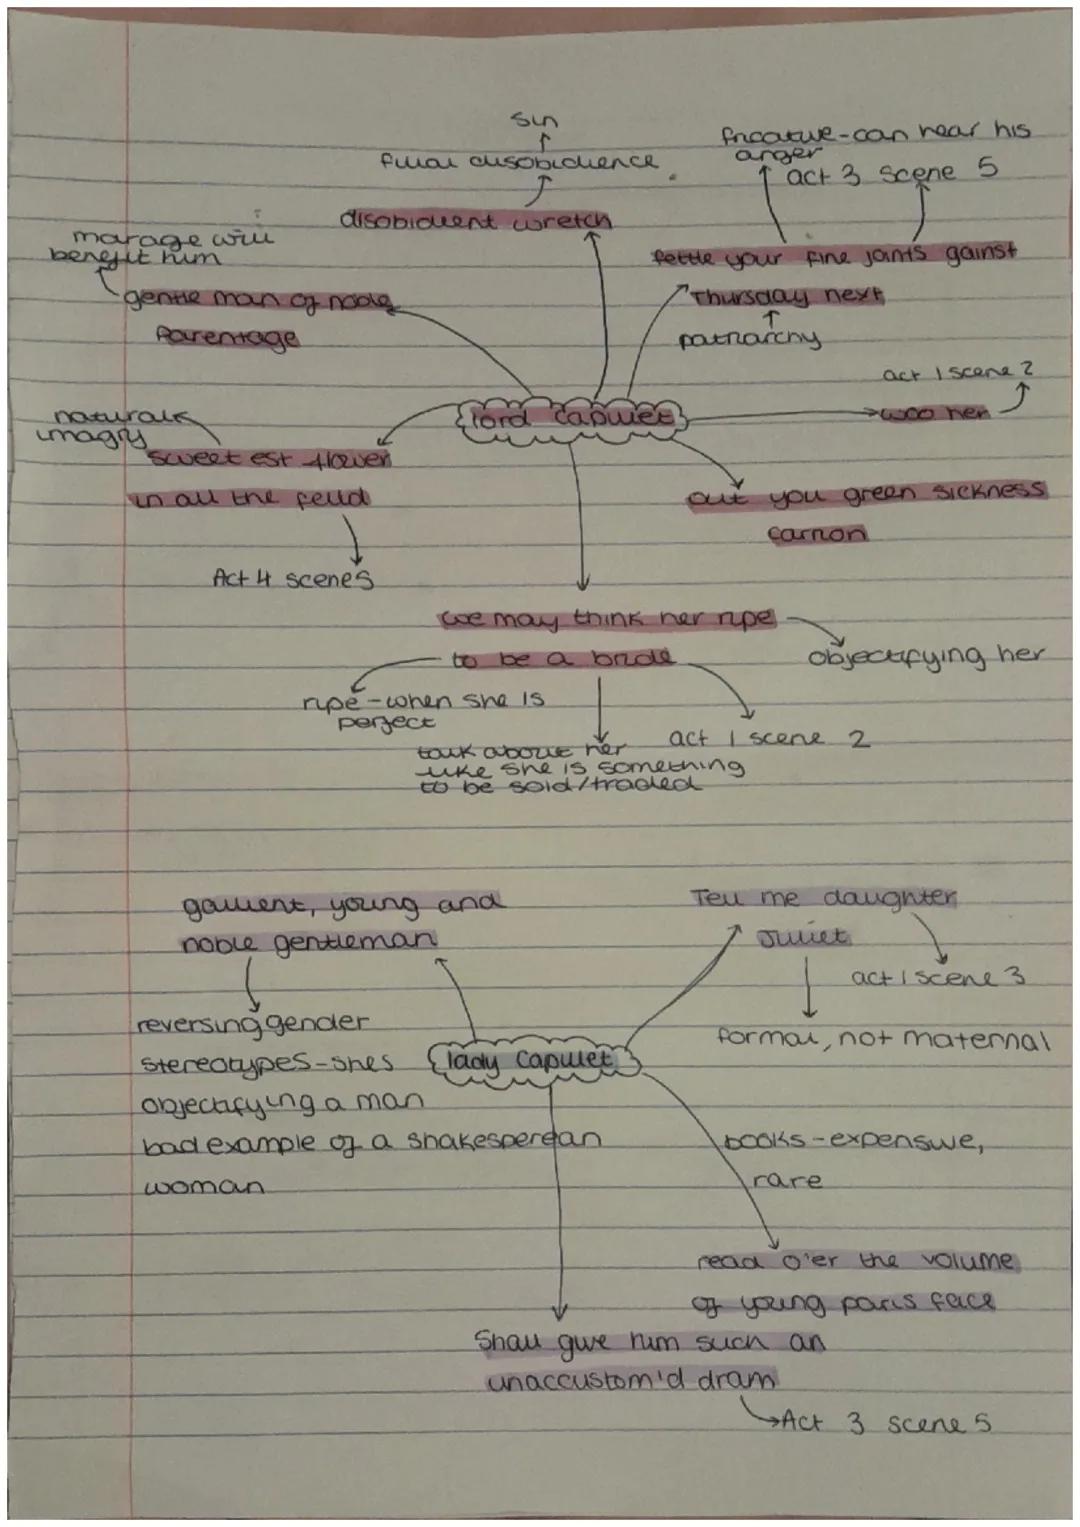 sin
filial disobidience
disobidient wretch
fricative-can hear his
anger
act 3 scene 5
fettle your fine joints gainst
Thursday next
patriarchy
marage will
benefit him
gentle man of noble
Parentage
lord Capulet
act 1 scene 2
woo her
naturalk
imagry
sweetest flower
in all the feild
Act 4 scene 5
out you green sickness
carrion
we may think her ripe
to be a bride
objectifying her
ripe-when she is
perfect
talk about her
like she is something
to be sold/traded
act 1 scene 2
gallent, young and
noble gentleman
reversing gender
stereotypes-shes
objectifying a man
bad example of a shakesperean
woman
lady Capulet
Tell me daughter
Juliet
act 1 scene 3
formal, not maternal
books-expensive,
rare
read o'er the volume
of young paris face
Shall give him such an
unaccustom'd dram
Act 3 scene 5